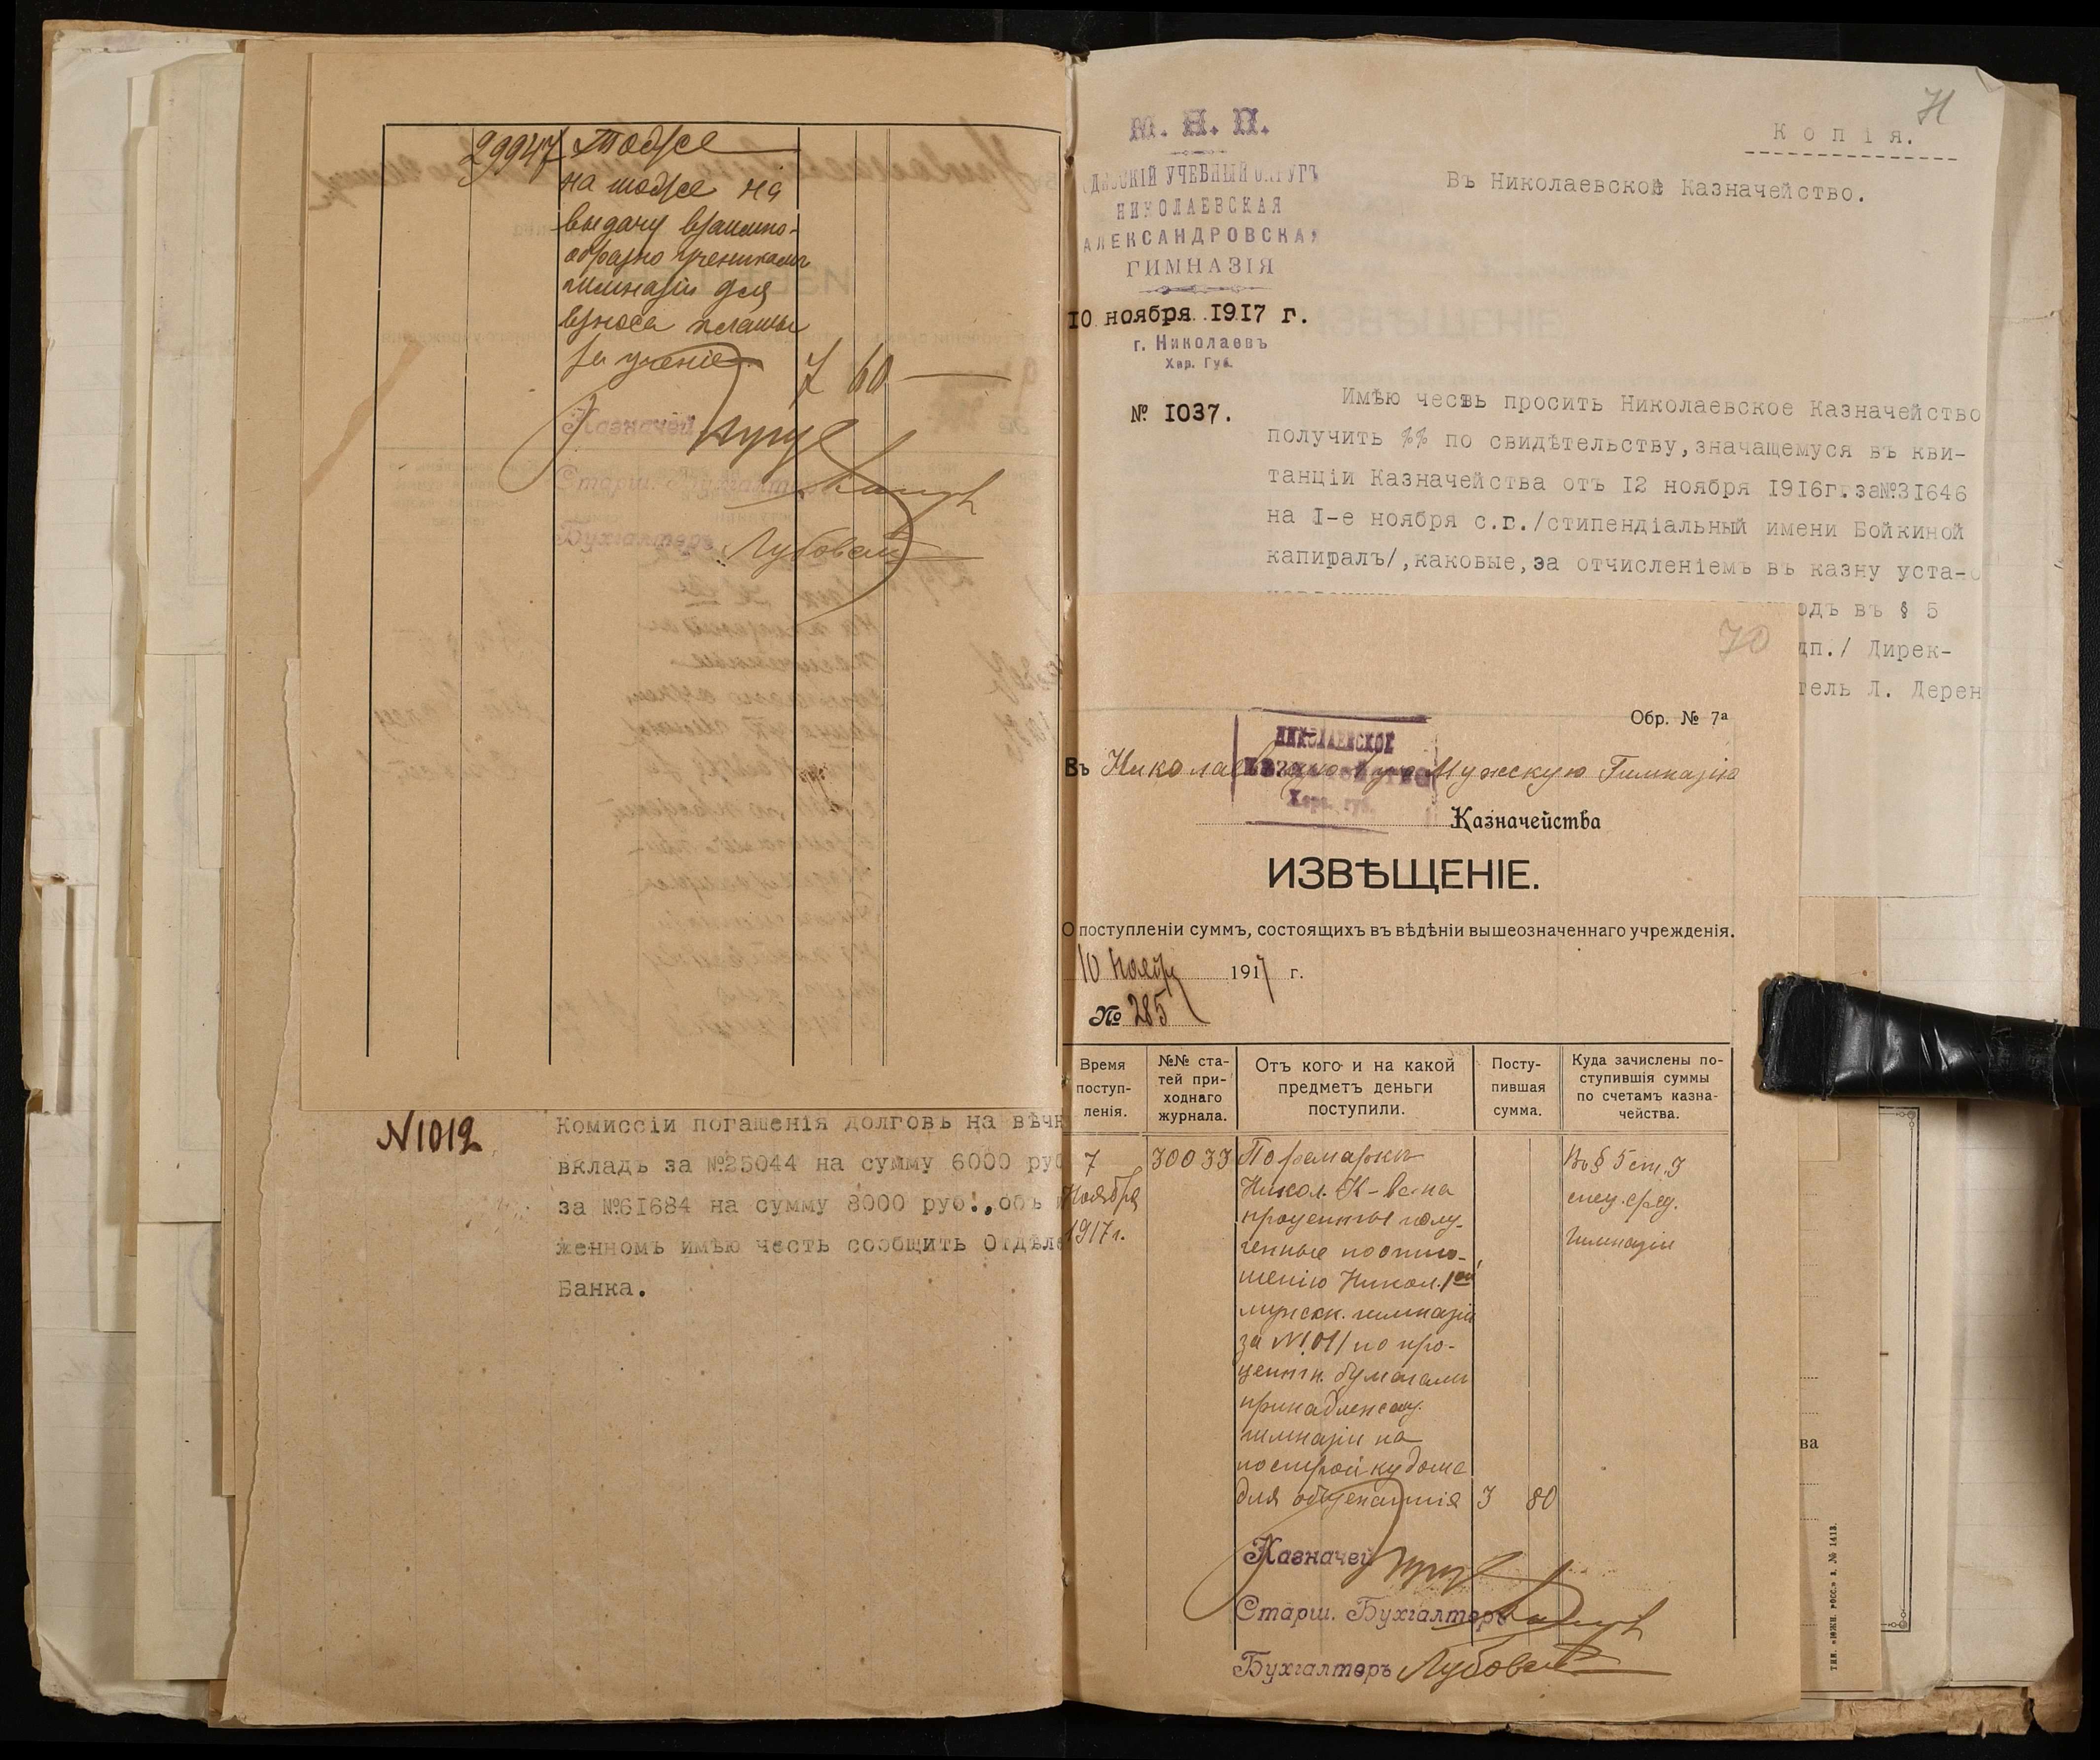 29947 Тоже
на тоже на
выдачу взаимно-
образно ученикамъ
гимназіи для
взноса платы
за ученіе 7 60 —
Казначей
Старш. Бухгалтеръ
Бухгалтеръ
N1012
Комиссіи погашенія долговъ на вѣчн
вкладъ за №25044 на сумму 6000 руб
за №61684 на сумму 8000 руб., объ
женномъ имѣю честь сообщить Отдѣле
Банка.
71
Копія.
М. Н. П.
ДЕССКІЙ УЧЕБНЫЙ ОКРУГЪ
НИКОЛАЕВСКАЯ
АЛЕКСАНДРОВСКАЯ
ГИМНАЗІЯ
10 ноября 1917 г.
г. Николаевъ
Хер. Губ.
№ 1037.
Въ Николаевское Казначейство.
Имѣю честь просить Николаевское Казначейство
получить %% по свидѣтельству, значащемуся въ кви-
танціи Казначейства отъ 12 ноября 1916г. за №31646
на 1-е ноября с.г./стипендіальный имени Бойкиной
капиталъ/, каковые, за отчисленіемъ въ казну уста-
одъ въ § 5
дп./ Дирек-
тель Л. Дерен
70
Обр. № 7а
НИКОЛАЕВСКОЕ
КАЗНАЧЕЙСТВО
Херс. губ.
Въ Николаевскую 1ую Мужскую Гимназію
Казначейства
ИЗВѢЩЕНІЕ.
О поступленіи суммъ, состоящихъ въ вѣдѣніи вышеозначеннаго учрежденія.
10 Ноября 1917 г.
№ 285
Время поступ-
ленія.
№№ ста-
тей при-
ходнаго
журнала.
Отъ кого и на какой
предметъ деньги
поступили.
Посту-
пившая
сумма.
Куда зачислены по-
ступившія суммы
по счетамъ казна-
чейства.
7
Ноября
1917 г.
30033
По ремарки
Никол. К-ва на
проценты полу-
ченные по отно-
шенію Никол. 1ой
мужск. гимназіи
за N1011 по про-
центн. бумагамъ
принадлежащ.
гимназіи на
постройку дома
для общежитія 3 80
Въ § 5 ст. 3
спец. сред.
Гимназіи
Казначей
Старш. Бухгалтеръ
Бухгалтеръ
ва
ТИП. «ЮЖН. РОСС.» З. № 1413.